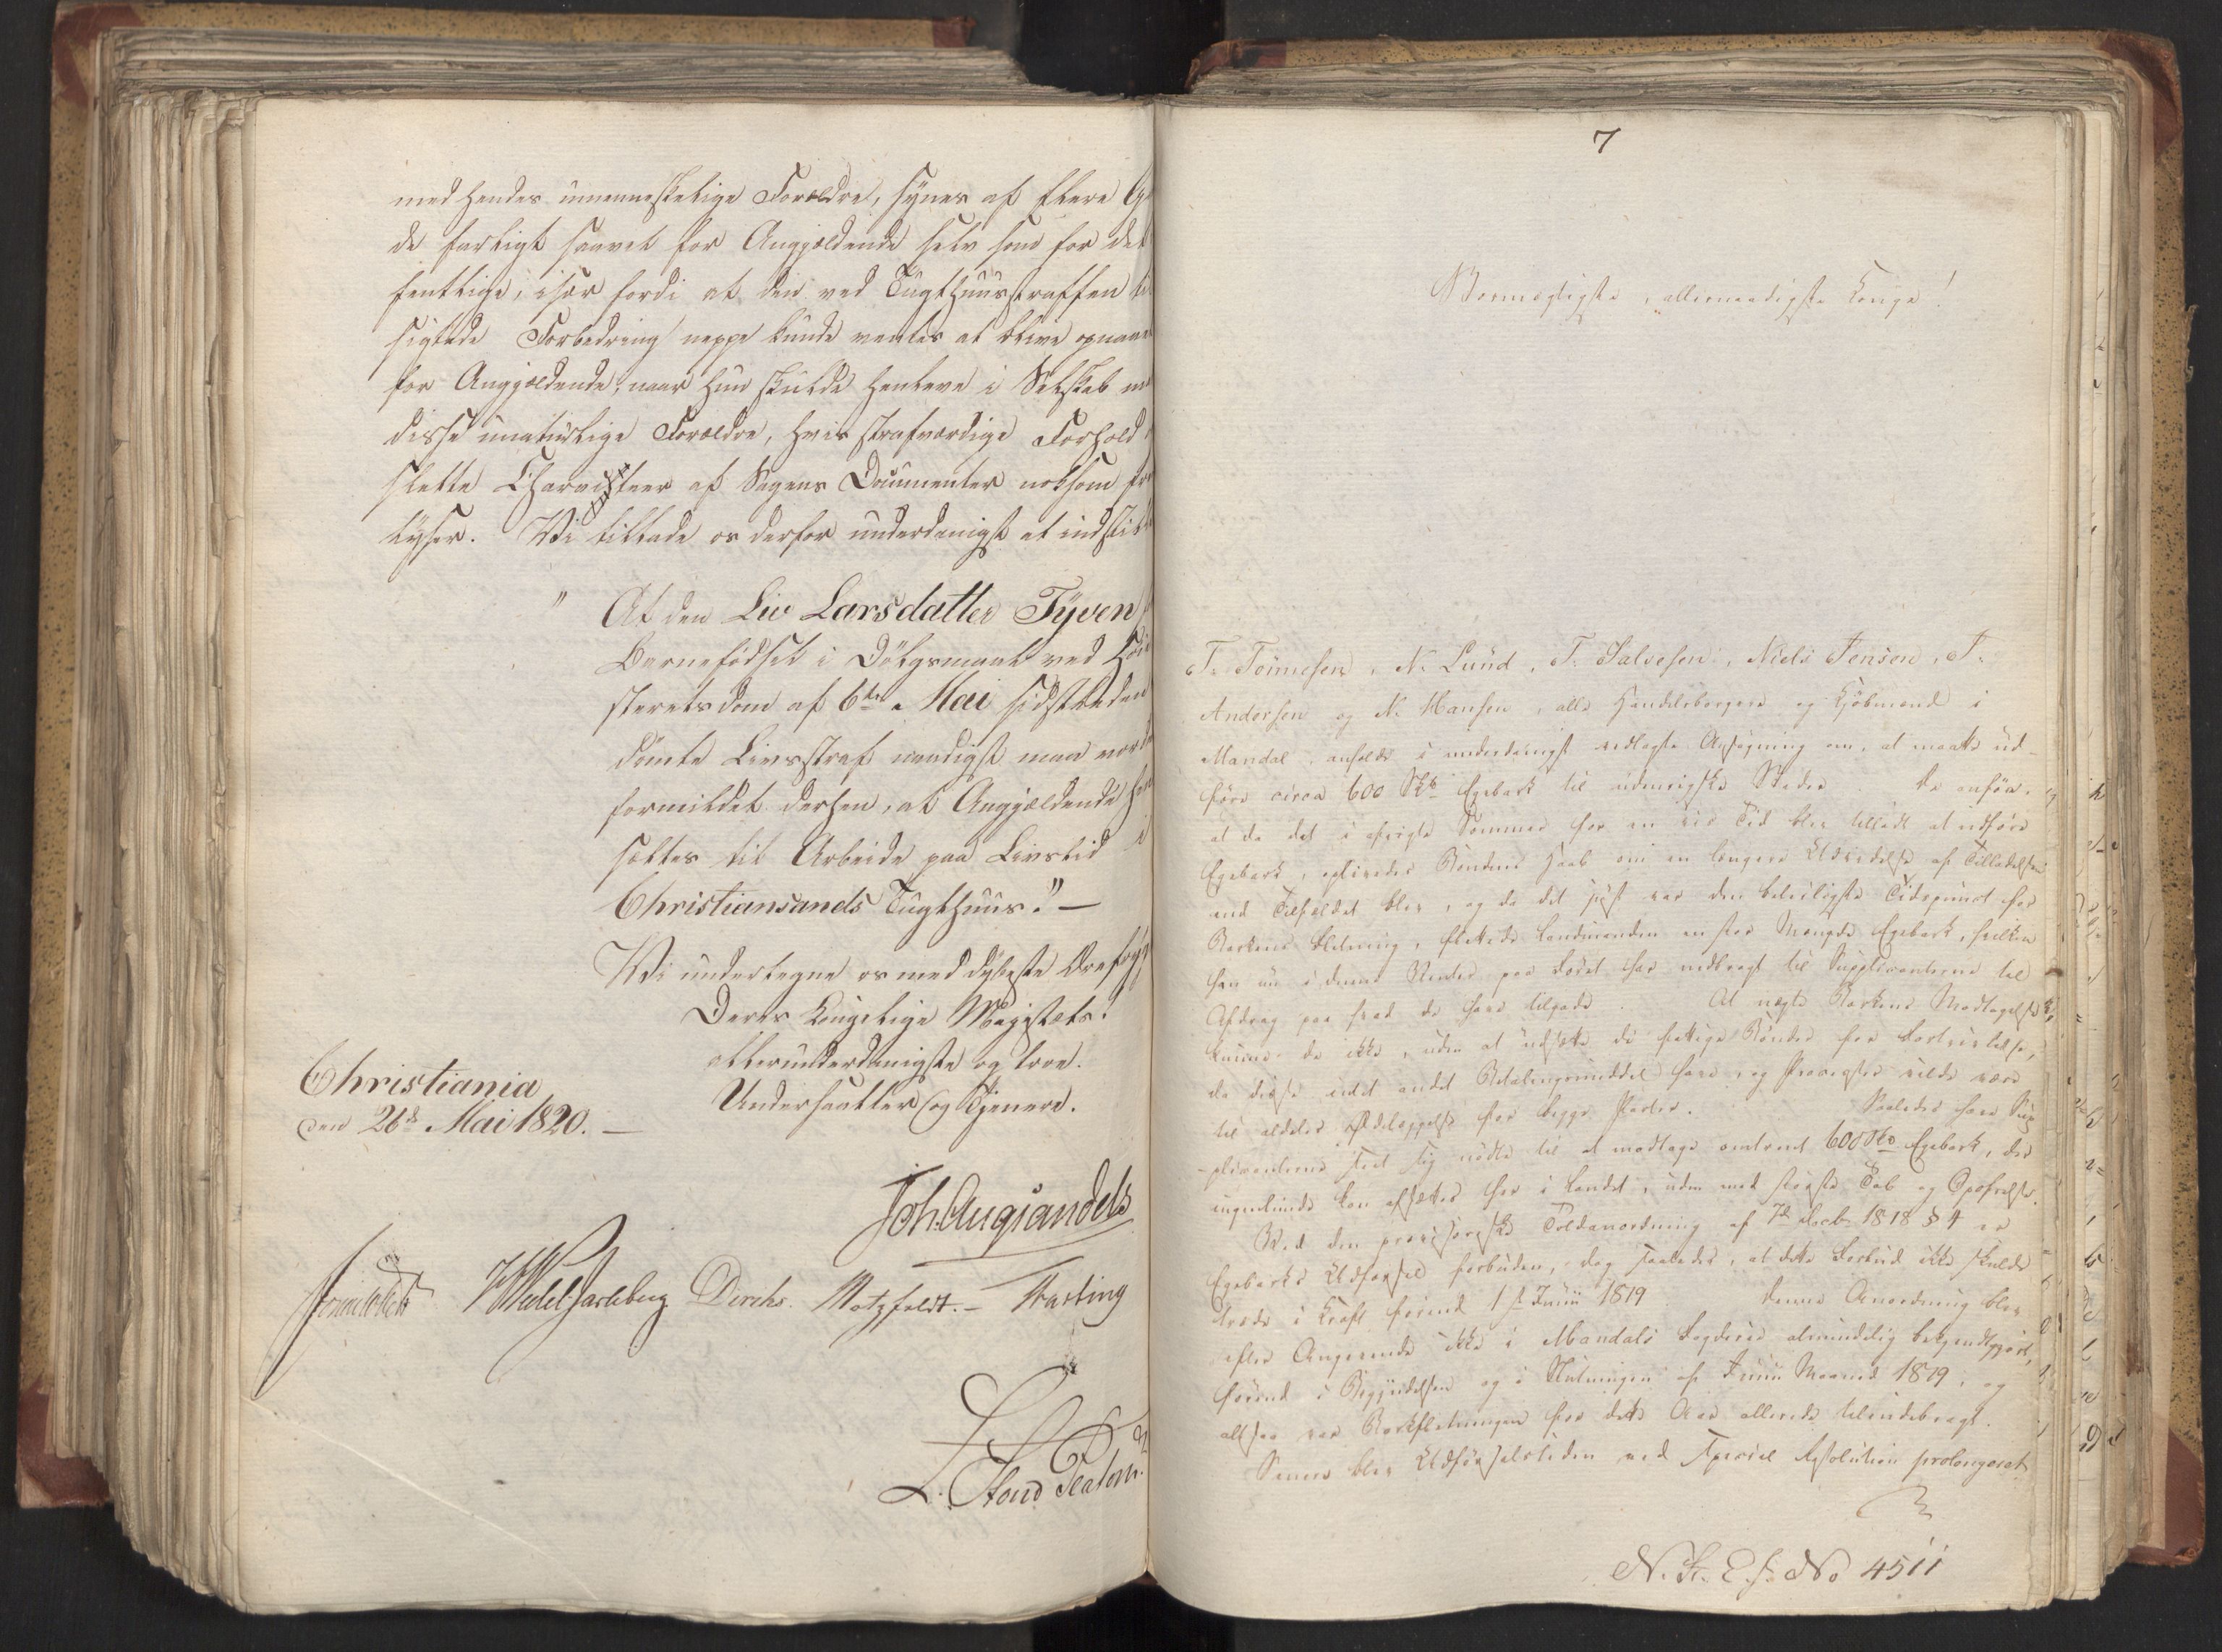 med hendes umenneskelige Forældre, synes af flere
de farligt saavel for Angjældende selv som for det
fentlige, især fordi at den ved Tugthuusstraffen
sigtede Forbedring neppe kunde ventes at blive opnaaet
for Angjældende, naar hun skulde henleve i Selskab
disse unaturlige Forældre, hvis strafværdige Forhold
slette Characteer af Sagens Documenter noksom
lyser. Vi tillade os derfor underdanigst at indstille
" At den Liv Larsdatter Tyven
Barnefødsel i Dølgsmaal ved Høie
steretsdom af 6te Mai sidstleden
dømte Livsstraf naadigst maa vorde
formildet derhen, at Angjældende
sættes til Arbeide paa Livstid i
Christiansands Tugthuus." —
Vi undertegne os med dybeste Ærefrygt
Deres Kongelige Majestæts
allerunderdanigste og troe.
Undersaatter og Tjenere.
Christiania
den 26de Mai 1820. —
Joh. Aug. Sandels
Sommerhielm HWedel Jarlsberg Diriks. Motzfeldt. — Fasting
L. Stoud Platou
7
Stormægtigste, allernaadigste Konge!
T. Tönnesen, N. Lund, T. Salvesen, Niels Jensen, T.
Andersen og N. Hansen, alle Handelsborgere og Kjøbmænd i
Mandal, anholde i underdanigst vedlagte Ansøgning om, at maatte ud-
føre circa 600 Skt Egebark til udenrigske Steder. De anføre,
at da det i afvigte Sommer for en vis Tid blev tilladt at udføre
Egebark, oplivedes Bøndernes Haab om en længere Udvidelse af Tilladelsen
end Tilfældet blev, og da det just var den beleiligste Tidspunct for
Barkens Flekning, flekkede Landmanden en stor Mængde Egebark, hvilken
han nu i denne Vinter paa Føret har nedbragt til Supplicanterne til
Afdrag paa hvad de have tilgode. At nægte Barkens Modtagelse
kunne de ikke, uden at udsætte de fattige Bønder for Fortvivlelse,
da disse intet andet Betalingsmiddel have, og Processer vilde være
til aldeles Ødelæggelse for begge Parter. Saaledes have Sup
plicanterne seet sig nødte til at modtage omtrent 600 Skt Egebark, der
ingenlunde kan afsættes her i Landet, uden med største Tab og Opofrelse.
Ved den provisoriske Toldanordning af 7de Decb 1818 § 4 er
Egebarks Udførsel forbuden, dog saaledes, at dette Forbud ikke skulde
træde i Kraft førend 1ste Junii 1819. Denne Anordning blev
efter Angivende ikke i Mandals Fogderie almindelig bekjendtgjort,
førend i Begyndelsen og i Slutningen af Junii Maaned 1819, og
altsaa var Barkflekningen for dette Aar allerede tilendebragt.
Senere blev Udførselstiden ved speciel Resolution prolongeret
N. St. E. J. No 4511